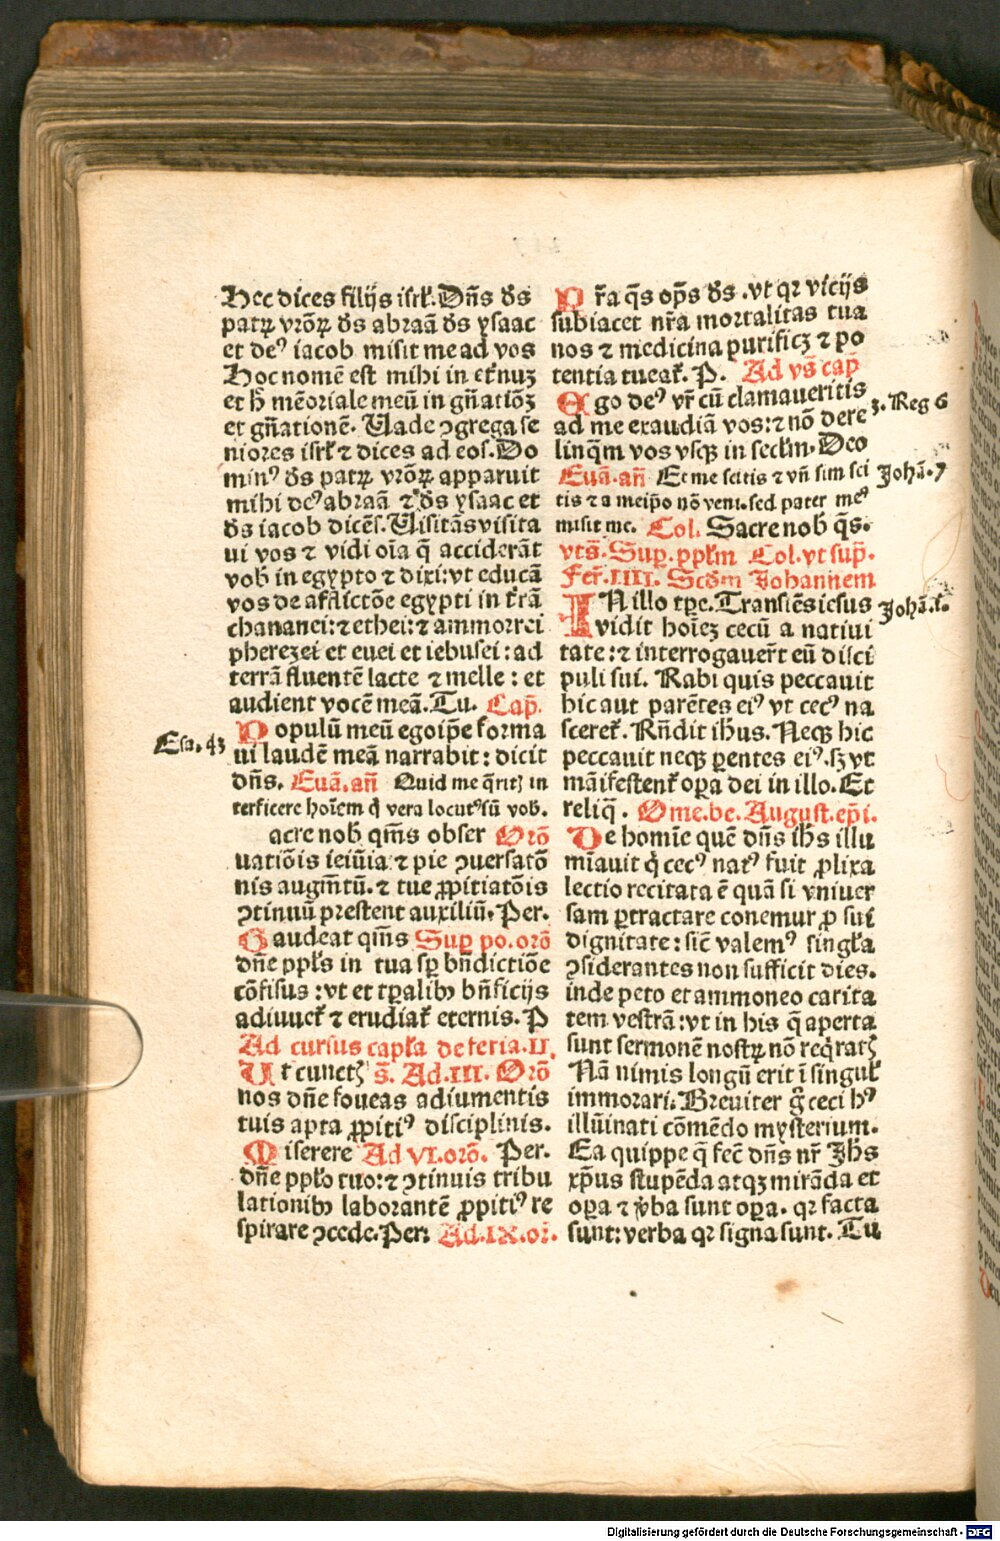 Hec dices filijs isrl̃. Dñs ds̃
patrꝫ vrõꝝ ds̃ abraã ds̃ ysaac
et deꝰ iacob misit me ad vos
Hoc nomẽ est mihi in etr̃nuꝫ
et h̃ mẽoriale meũ in gñatiõꝫ
et gñationẽ. Vade ꝯgrega se
niores isrl̃ ⁊ dices ad eos. Do
minꝰ ds̃ patrꝫ vrõꝝ apparuit
mihi deꝰ abraã ⁊ ds̃ ysaac et
ds̃ iacob dicẽs. Visitãs visita
ui vos ⁊ vidi oĩa q̃ acciderãt
vob̃ in egypto ⁊ dixi: vt educã
vos de afflictõe egypti in tr̃rã
chananei: ⁊ ethei: ⁊ ammorrei
pherezei et euei et iebusei: ad
terrã fluentẽ lacte ⁊ melle: et
audient vocẽ meã. Tu. Cap̃.
Populũ meũ egoip̃e forma
ui laudẽ meã narrabit: dicit
dñs. Euã. añ Quid me q̃ritꝭ in
terficere hoĩem q̃ vera locutꝰ sũ vob̃.
acre nob̃ qm̃s obser Orõ
uatiõis ieiũia ⁊ pie ꝯuersatõ
nis augm̃tũ. ⁊ tue ꝓpitiatõis
ꝯtinuũ prestent auxiliũ. Per.
Gaudeat qm̃s Suꝑ po. orõ
dñe ppl̃s in tua sꝑ bñdictiõe
cõfisus: vt et tꝑalibꝫ bñficijs
adiuuet̃ ⁊ erudiat̃ eternis. P
Ad cursus capl̃a de feria. II.
Vt cunctꝭ s̃. Ad. III. Orõ
nos dñe foueas adiumentis
tuis apta ꝓpitiꝰ disciplinis.
Miserere Ad VI. orõ. Per.
dñe ppl̃o tuo: ⁊ ꝯtinuis tribu
lationibꝫ laborantẽ ꝓpitiꝰ re
spirare ꝯcede. Per. Ad. IX. or̃.
Esa. 43
Pr̃a q̃s op̃s ds̃. vt qꝛ vicijs
subiacet nr̃a mortalitas tua
nos ⁊ medicina purificꝫ ⁊ po
tentia tueat̃. P. Ad vs̃ cap̃
Ego deꝰ vr̃ cũ clamaueritis
ad me exaudiã vos: ⁊ nõ dere
linqm̃ vos vsqꝫ in secl̃m. Deo
Euã. añ Et me scitis ⁊ vñ sim sci
tis ⁊ a meip̃o nõ veni. sed pater meꝰ
misit me. Col. Sacre nob̃ q̃s.
vts̃. Suꝑ. ppl̃m Col. vt sup̃.
Fer̃. IIII. Scdm̃ Johannem
IN illo tꝑe. Transiẽs iesus
vidit hoĩeꝫ cecũ a natiui
tate: ⁊ interrogauer̃t eũ disci
puli sui. Rabi quis peccauit
hic aut parẽtes eiꝰ vt cecꝰ na
sceret̃. Rñdit ih̃us. Neqꝫ hic
peccauit neqꝫ ꝑentes eiꝰ. sꝫ vt
mãifestent̃ oꝑa dei in illo. Et
reliq̃. Ome. be. August. ep̃i.
De homĩe quẽ dñs ih̃s illu
mĩauit q̃ cecꝰ natꝰ fuit ꝓlixa
lectio recitata ẽ quã si vniuer
sam ꝑtractare conemur ꝓ sui
dignitate: sic̃ valemꝰ singl̃a
ꝯsiderantes non sufficit dies.
inde peto et ammoneo carita
tem vestrã: vt in his q̃ aperta
sunt sermonẽ nostrꝫ nõ req̃ratꝭ
Nã nimis longũ erit ĩ singul̃
immorari. Breuiter g̃ ceci hꝰ
illũinati cõmẽdo mysterium.
Ea quippe q̃ fec̃ dñs nr̃ Jh̃s
xp̃us stupẽda atqꝫ mirãda et
oꝑa ⁊ v̾ba sunt oꝑa. qꝛ facta
sunt: verba qꝛ signa sunt. Tu
3. Reg 6
Johã. 7
Digitalisierung gefördert durch die Deutsche Forschungsgemeinschaft - DFG